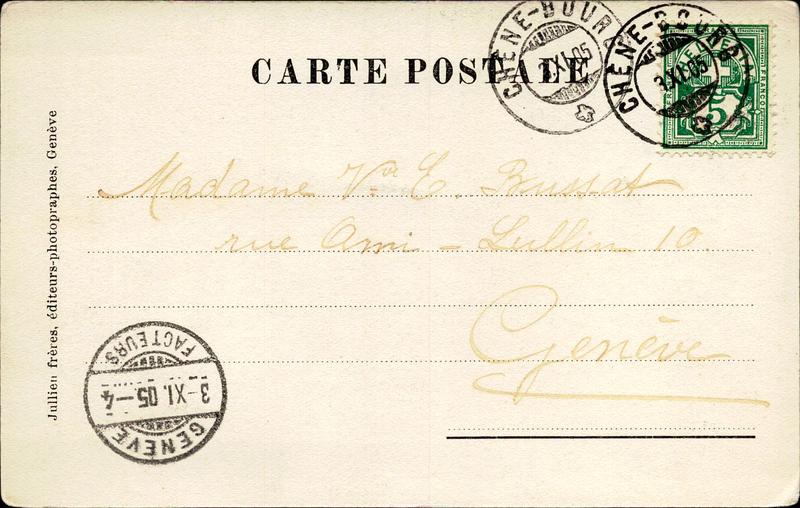 CARTE POSTALE
CHÊNE-BOURG
3.XI.05
CHÊNE-BOURG
3.XI.05
FRANCO
5
Madame Vve E. Bussat
rue Ami-Lullin 10.
Genève
Jullien frères, éditeurs-photographes, Genève
GENÈVE
3-XI.05-4
FACTEURS